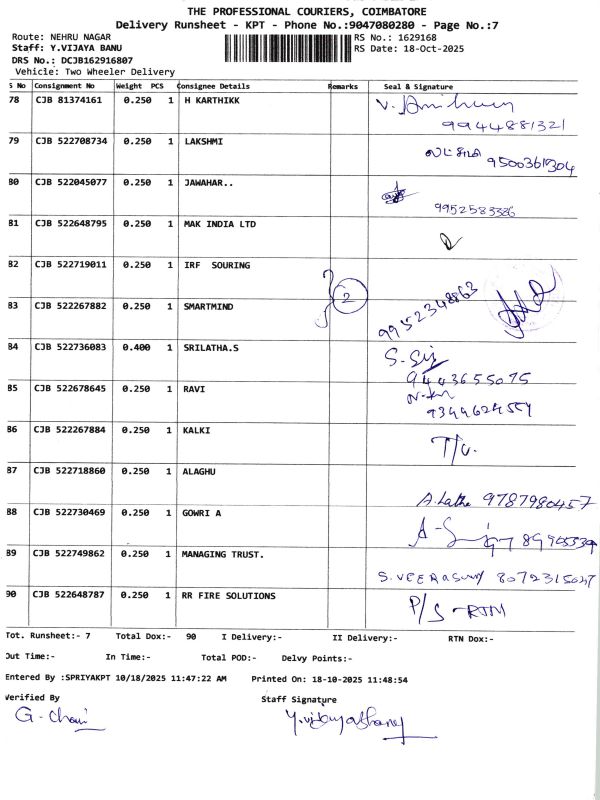 THE PROFESSIONAL COURIERS, COIMBATORE
Delivery Runsheet - KPT - Phone No.:9047080280 - Page No.:7
Route: NEHRU NAGAR RS No.: 1629168
Staff: Y.VIJAYA BANU RS Date: 18-Oct-2025
DRS No.: DCJB162916807
Vehicle: Two Wheeler Delivery
S No Consignment No Weight PCS Consignee Details Remarks Seal & Signature
78 CJB 81374161 0.250 1 H KARTHIKK
9944881321
79 CJB 522708734 0.250 1 LAKSHMI
லட்சுமி 9500361304
80 CJB 522045077 0.250 1 JAWAHAR..
9952583386
81 CJB 522648795 0.250 1 MAK INDIA LTD
82 CJB 522719011 0.250 1 IRF SOURING
2
9952348863
83 CJB 522267882 0.250 1 SMARTMIND
84 CJB 522736083 0.400 1 SRILATHA.S
9443655075
85 CJB 522678645 0.250 1 RAVI
9344624554
86 CJB 522267884 0.250 1 KALKI
87 CJB 522718860 0.250 1 ALAGHU
A.Latha 9787980457
88 CJB 522730469 0.250 1 GOWRI A
89 CJB 522749862 0.250 1 MANAGING TRUST.
S.VEERASAMY 8072315047
90 CJB 522648787 0.250 1 RR FIRE SOLUTIONS
P/S -RTN
Tot. Runsheet:- 7 Total Dox:- 90 I Delivery:- II Delivery:- RTN Dox:-
Out Time:- In Time:- Total POD:- Delvy Points:-
Entered By :SPRIYAKPT 10/18/2025 11:47:22 AM Printed On: 18-10-2025 11:48:54
Verified By Staff Signature